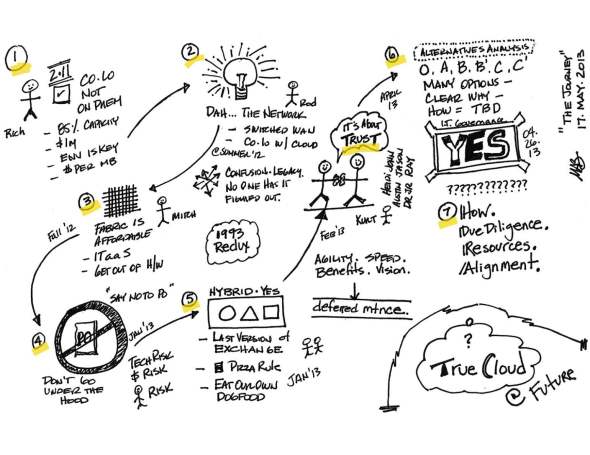 1
2.11
CO.LO
NOT
ON PREM
Rich
- 85% CAPACITY
- $1M
- ENV IS KEY
- $ PER MB
2
DAH... THE NETWORK
Rod
- SWITCHED WAN
- CO.LO W/ CLOUD
@SUMMER '12
CONFUSION. LEGACY.
NO ONE HAS IT
FIGURED OUT.
3
FABRIC IS
AFFORDABLE
- ITaaS
- GET OUT OF H/W
MITCH
Fall '12
1993
Redux
"SAY NO TO PO"
4
PO
DON'T GO
UNDER THE
HOOD
JAN '13
TECH RISK
$ RISK
RISK
5
HYBRID. YES
- LAST VERSION OF
EXCHANGE
- PIZZA RULE
- EAT OUR OWN
DOGFOOD
JAN'13
IT'S ABOUT
TRUST
FEB '13
KURT
HEIDI JOHN
JASON
DR. JR RAY
AGILITY. SPEED.
Benefits. Vision.
deferred mtnce.
APRIL
'13
6
ALTERNATIVES ANALYSIS
O, A, B, B', C, C'
MANY OPTIONS -
CLEAR WHY -
HOW = TBD
I.T. Governance
YES
04.
26.
13
?????????????
7
/How.
/Due Diligence.
/Resources.
/Alignment.
?
True Cloud
@ Future
"THE JOURNEY"
17. MAY. 2013